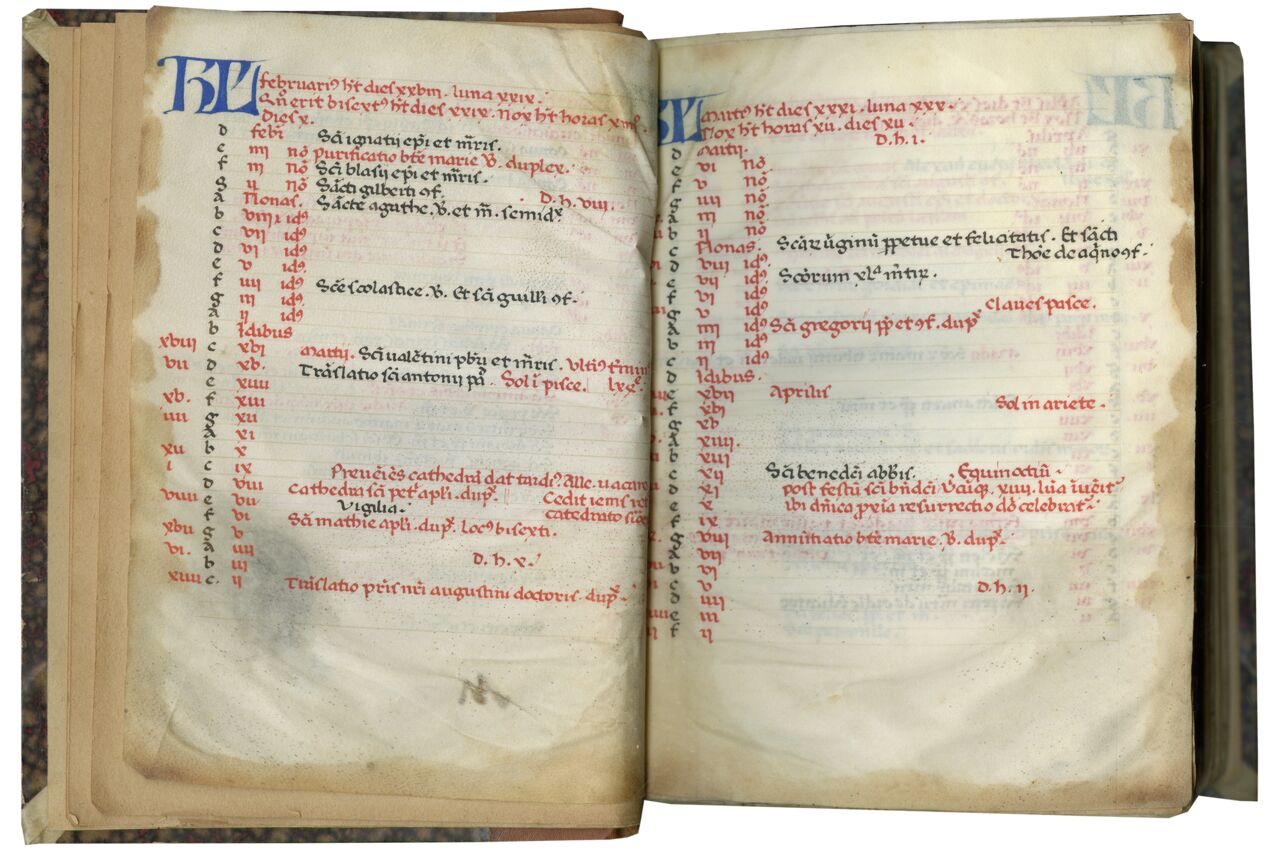 KL februariꝰ ħt dies xxviii. luna xxix.
Si erit bisextꝰ ħt dies xxix. nox ħt horas xiiii.
Dies x.
d febr̄ Sc̄i ignatii ep̄i et m̄ris.
e iiii nō purificatio bt̄e marie v̄. duplex.
f iii nō Sc̄i blasii ep̄i et m̄ris.
g ii nō Sācti gilberti ꝯf.
A Nonas. Sācte agathe. v̄. et m̄. semidˣ D. h. viii.
b viii idꝰ
c vii idꝰ
d vi idꝰ
e v idꝰ
f iiii idꝰ Sc̄e scolastice. v̄. Et sc̄i guill̄i ꝯf.
g iii idꝰ
A ii idꝰ
b Idibus
xviii c xvi martii. Sc̄i valētini pb̄ri et m̄ris. vlti
vii d xv. Trāslatio sc̄i antonii pa. Sol ī pisce. lxx
e xiiii
xv. f xiii
iiii g xii
A xi
xii b x
i c ix
d viii Cathedra sc̄i pet̄ apl̄i. dup̄. Cedit iems
viiii e vii Vigilia.
f vi Sc̄i mathie apl̄i. dup̄. locꝰ bisexti.
xvii g v
vi. A iiii D. h. x.
b iii
xiiii c. ii Trāslatio pr̄is nr̄i augustini doctoris. dup̄.
KL martꝰ ħt dies xxxi. luna xxx.
Nox ħt horas xii. dies xii.
d Martii. D. h. i.
e vi nō
f v nō
g iiii nō
A iii nō
b ii nō
c Nonas. Scāꝝ v̄ginū ꝑpetue et felicitatis. Et sāct̄i
Thōe de aq̄no ꝯf.
d viii idꝰ
e vii idꝰ Scōrum xl m̄tiꝝ.
f vi idꝰ
g v idꝰ claues pasce.
A iiii idꝰ Sc̄i gregorii pp̄ et ꝯf. dup̄
b iii idꝰ
c ii idꝰ
d Idibus.
e xvii Aprilis
f xvi Sol in ariete.
g xv
A xiiii.
b xiii
c xii Sc̄i benedc̄i abb̄is. Equinoctiū.
d xi post festū sc̄i bn̄dc̄i
e x ibi dn̄ica resurrectio celebrat
f ix
g viii Annūtiatio bt̄e marie v̄. dup̄.
A vii
b vi
c v D. h. ii.
d iiii
e iii
f ii